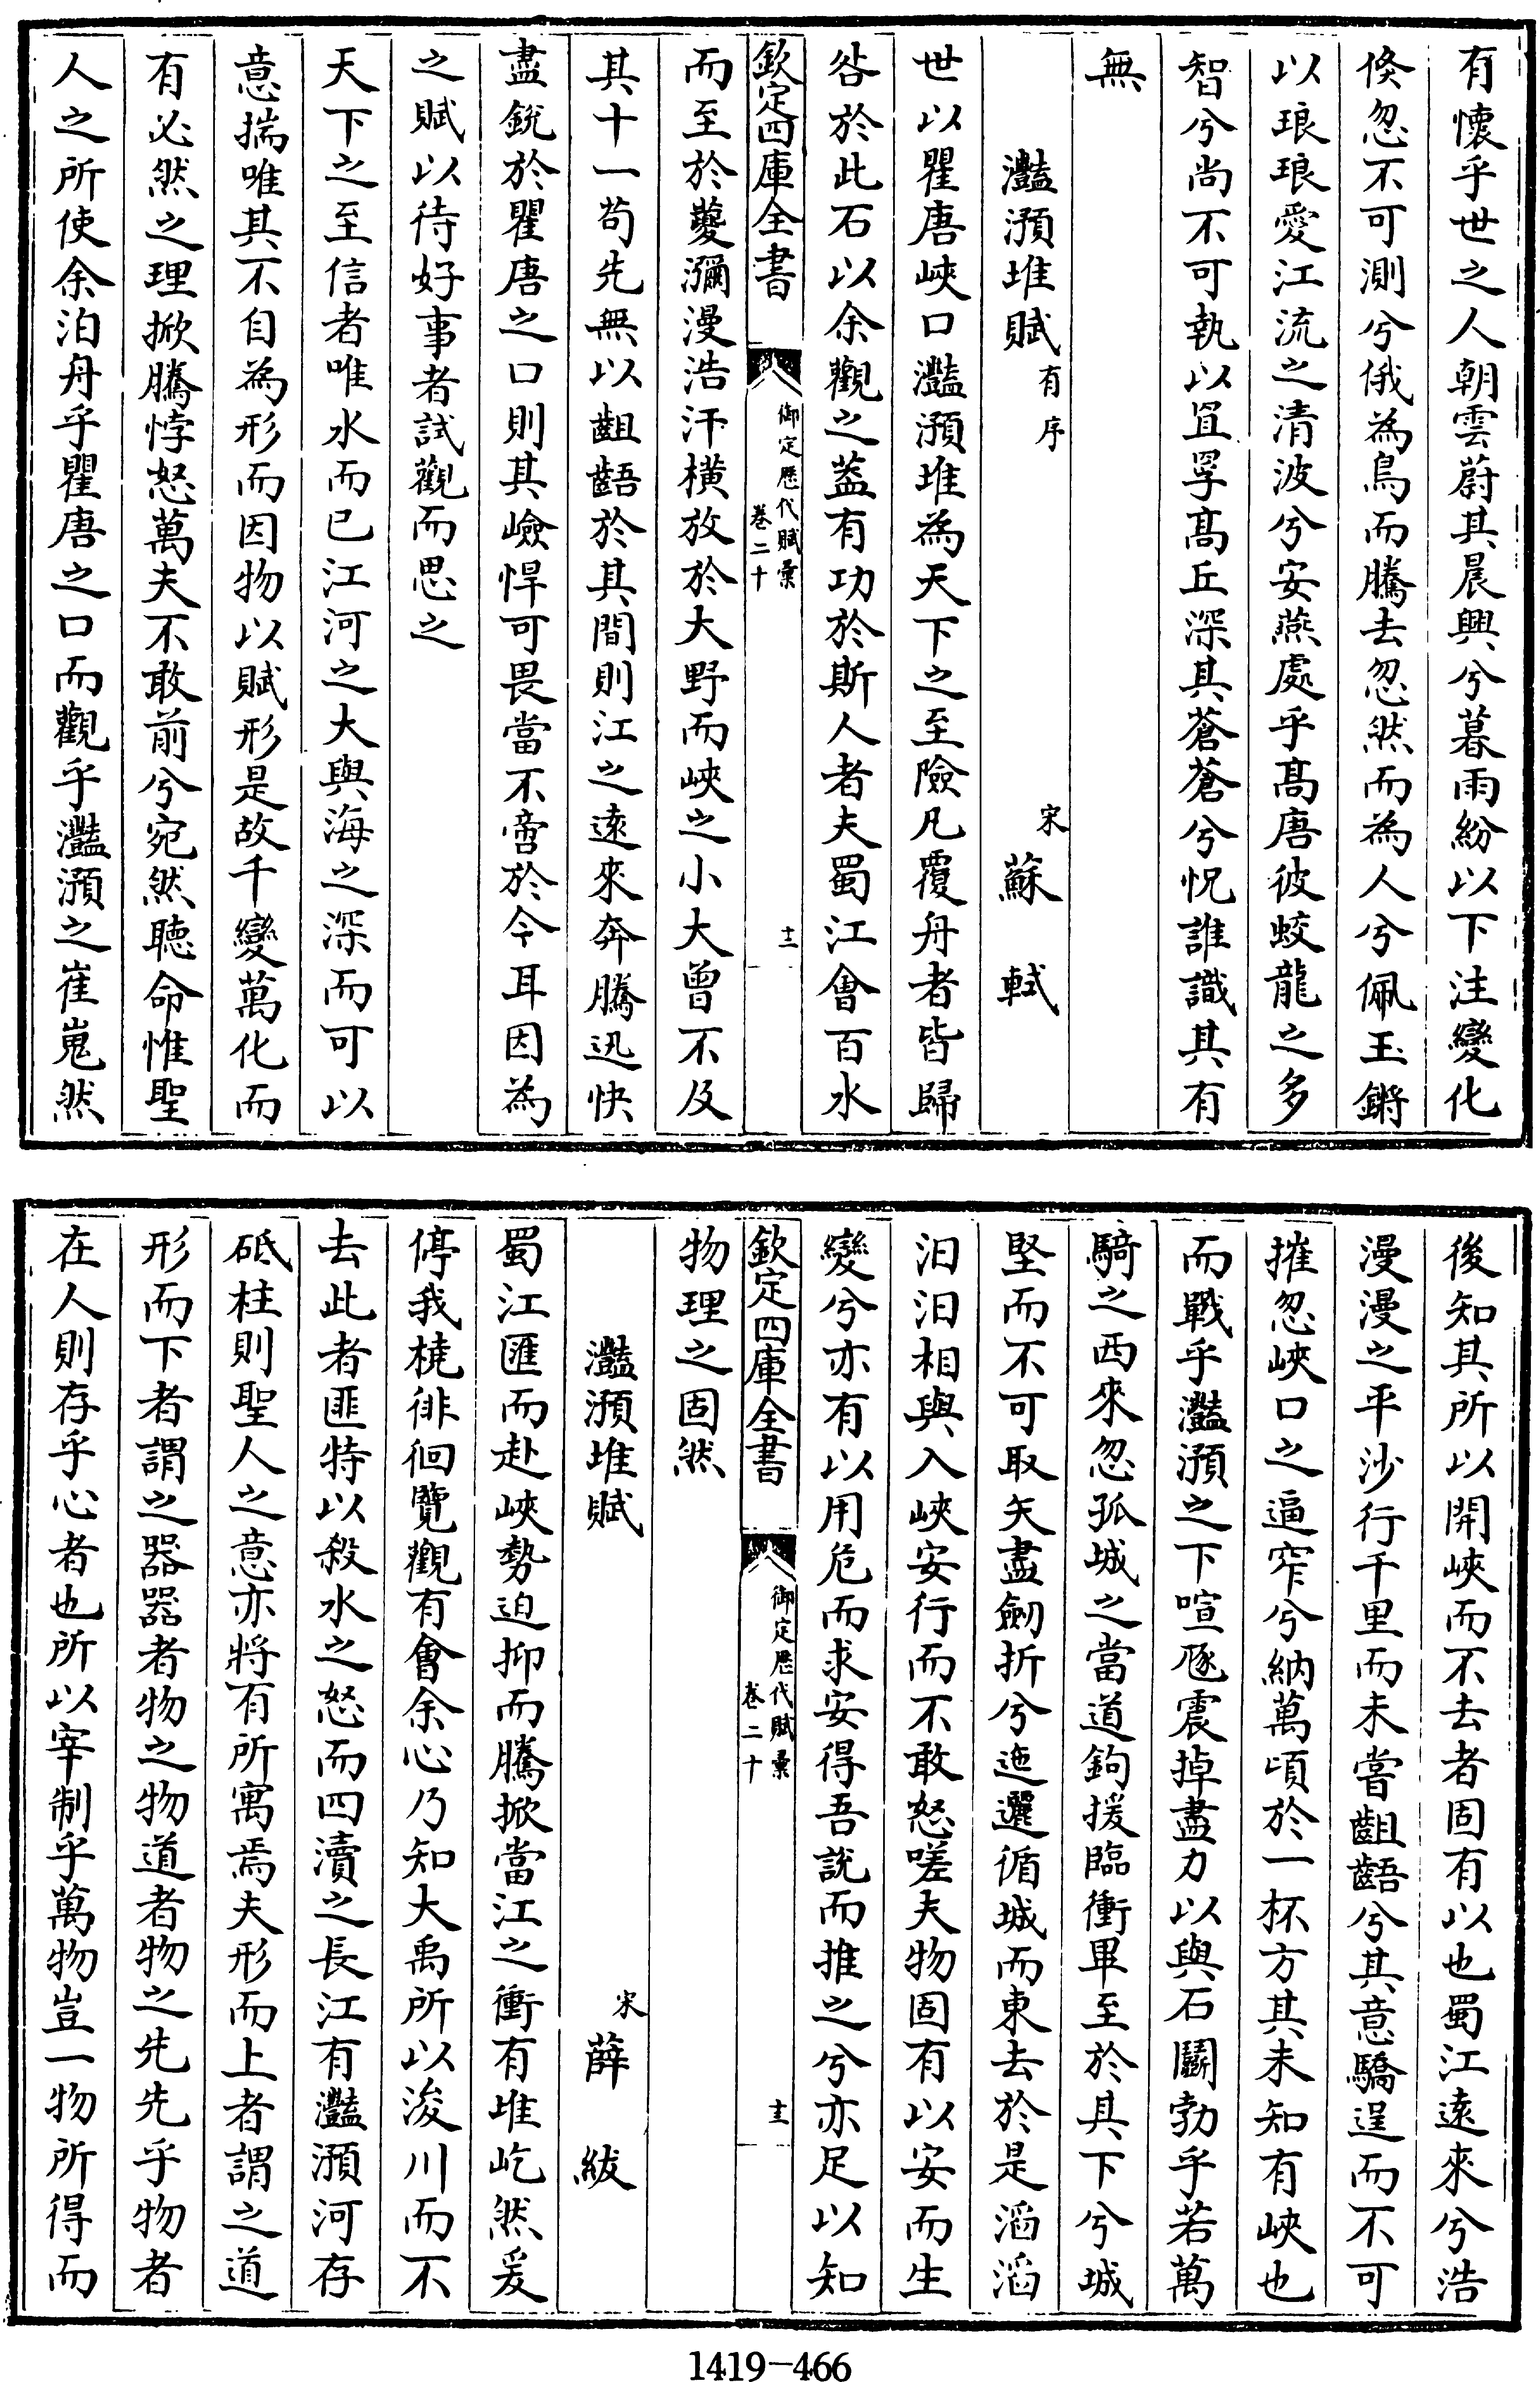 有懷乎世之人朝雲蔚其晨興兮暮雨紛以下注變化
倏忽不可測兮俄為鳥而騰去忽然而為人兮佩玉鏘
以琅琅愛江流之清波兮安燕處乎髙唐彼蛟龍之多
智兮尚不可執以罝罦髙丘深其蒼蒼兮怳誰識其有
無
灩澦堆賦有序
宋蘇軾
世以瞿唐峽口灩澦堆為天下之至險凡覆舟者皆歸
咎於此石以余觀之葢有功於斯人者夫蜀江會百水
欽定四庫全書
御定歷代賦彙
卷二十
十二
而至於夔瀰漫浩汗橫放於大野而峽之小大曾不及
其十一茍先無以齟齬於其間則江之遠來奔騰迅快
盡銳於瞿唐之口則其嶮悍可畏當不啻於今耳因為
之賦以待好事者試觀而思之
天下之至信者唯水而已江河之大與海之深而可以
意揣唯其不自為形而因物以賦形是故千變萬化而
有必然之理掀騰悖怒萬夫不敢前兮宛然聽命惟聖
人之所使余泊舟乎瞿唐之口而觀乎灩澦之崔嵬然
後知其所以開峽而不去者固有以也蜀江遠來兮浩
漫漫之平沙行千里而未嘗齟齬兮其意驕逞而不可
摧忽峽口之逼窄兮納萬頃於一杯方其未知有峽也
而戰乎灩澦之下喧豗震掉盡力以與石鬬勃乎若萬
騎之西來忽孤城之當道鉤援臨衝畢至於其下兮城
堅而不可取矢盡劒折兮迤邐循城而東去於是滔滔
汩汩相與入峽安行而不敢怒嗟夫物固有以安而生
變兮亦有以用危而求安得吾說而推之兮亦足以知
欽定四庫全書
御定歷代賦彙
卷二十
十三
物理之固然
灩澦堆賦
宋薛紱
蜀江匯而赴峽勢迫抑而騰掀當江之衝有堆屹然爰
停我橈徘徊覽觀有會余心乃知大禹所以浚川而不
去此者匪特以殺水之怒而四瀆之長江有灩澦河存
砥柱則聖人之意亦將有所寓焉夫形而上者謂之道
形而下者謂之器器者物之物道者物之先先乎物者
在人則存乎心者也所以宰制乎萬物豈一物所得而
1419-466